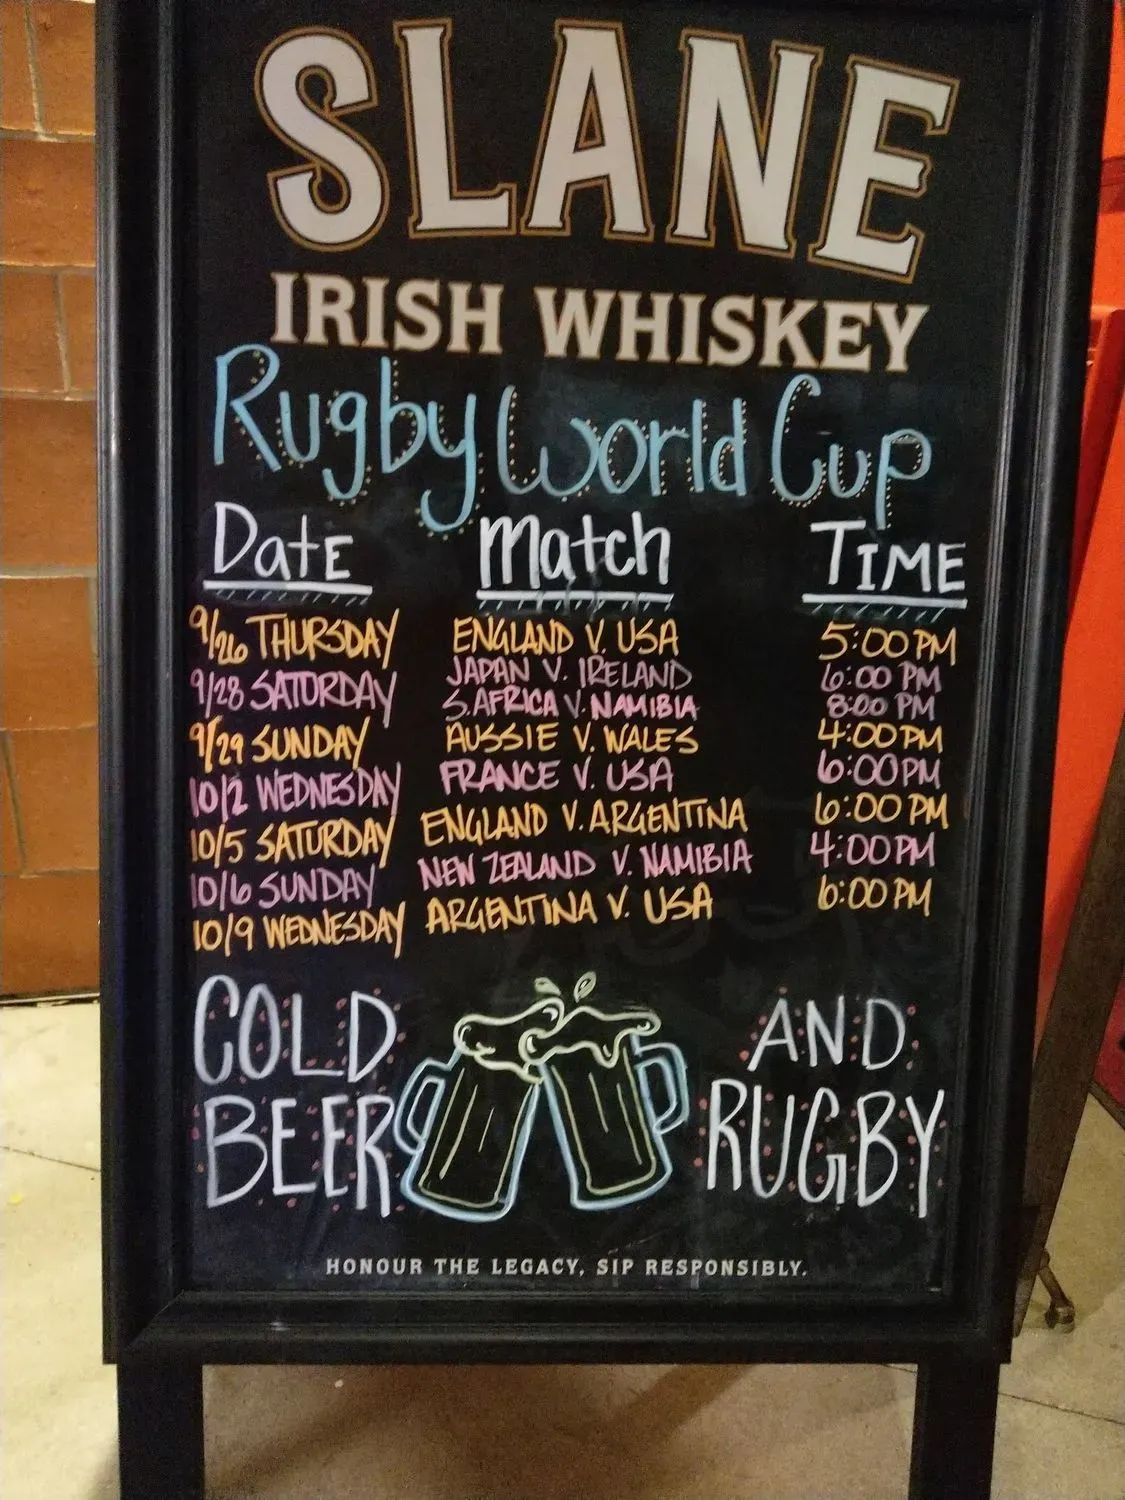 SLANE
IRISH WHISKEY
Rugby World Cup
Date Match TIME
9/26 THURSDAY ENGLAND V. USA 5:00 PM
9/28 SATURDAY JAPAN V. IRELAND 6:00 PM
S. AFRICA V. NAMIBIA 8:00 PM
9/29 SUNDAY AUSSIE V. WALES 4:00 PM
10/2 WEDNESDAY FRANCE V. USA 6:00 PM
10/5 SATURDAY ENGLAND V. ARGENTINA 6:00 PM
10/6 SUNDAY NEW ZEALAND V. NAMIBIA 4:00 PM
10/9 WEDNESDAY ARGENTINA V. USA 6:00 PM
COLD AND
BEER RUGBY
HONOUR THE LEGACY, SIP RESPONSIBLY.